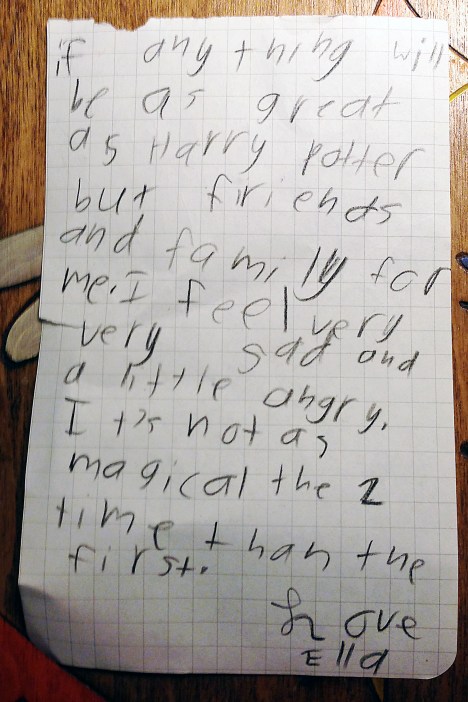 if any thing will
be as great
as Harry potter
but firiends
and family for
me. I feel very
very sad and
a little angry.
It's not as
magical the 2
time than the
first.
Love
Ella